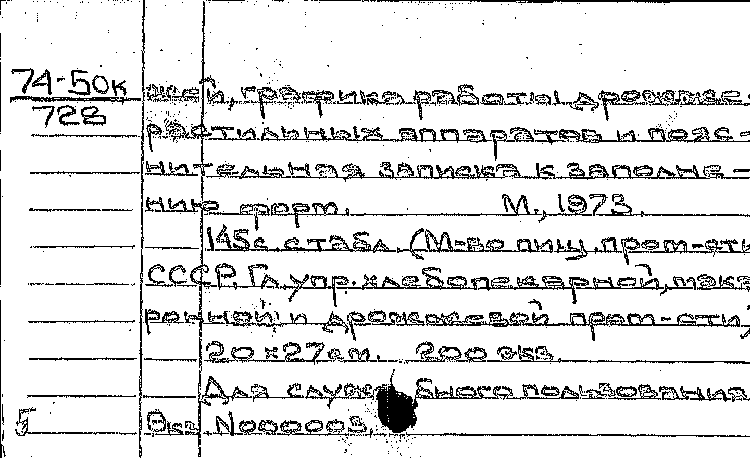 74-50к
728
жей, графика работы дрожжера-
растильных аппаратов и пояс-
нительная записка к заполне-
нию форм. М., 1973.
145с. с табл. (М-во пищ. пром-сти
СССР. Гл. упр. хлебопекарной, мака-
ронной и дрожжевой пром-сти)
20х27см. 200 экз.
Для служебного пользования
5 Экз. N000003.